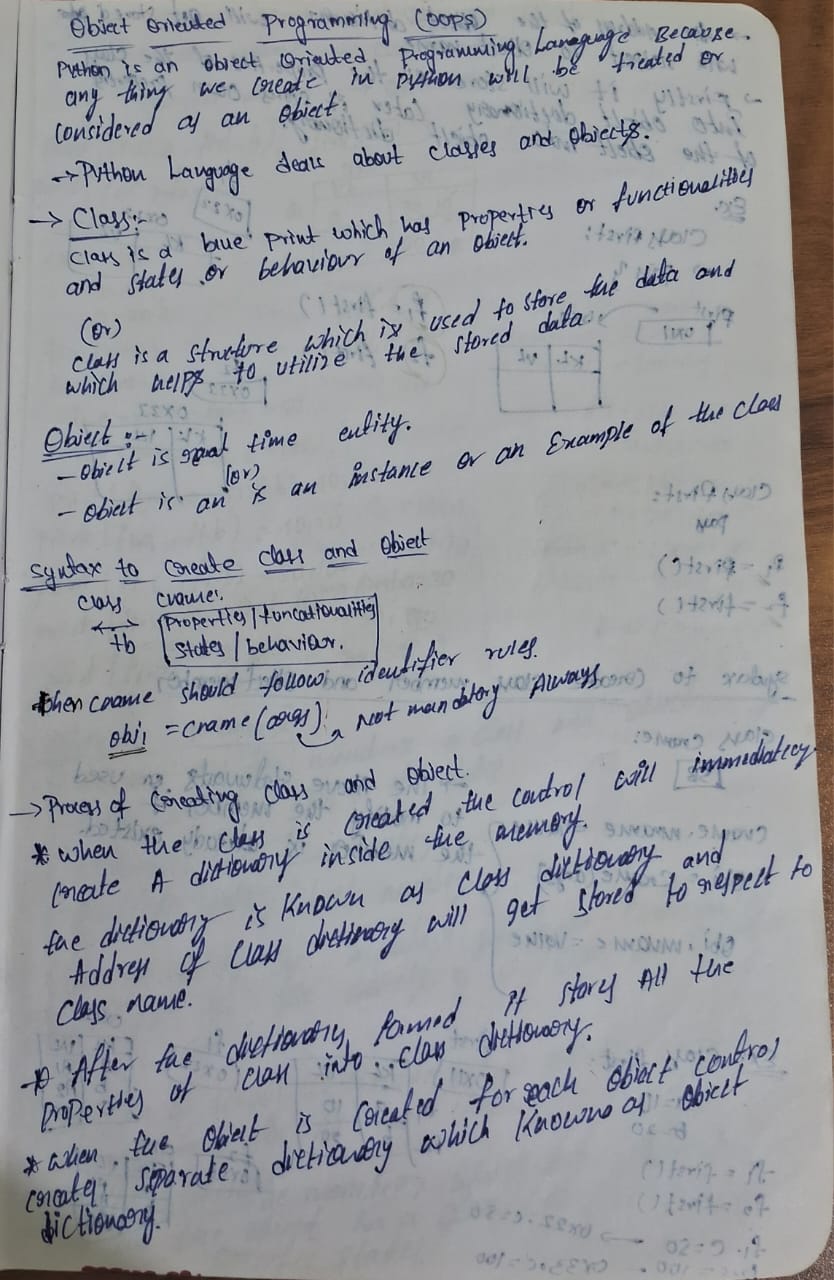 Object Oriented Programming (OOPS)
Python is an Object Oriented Programming Language Because.
any thing we Create in Python will be treated or
Considered as an Object.
→ Python Language deals about classes and objects.
→ Class:-
Class is a blue print which has Properties or functionalities
and states or behaviour of an Object.
(or)
Class is a Structure which is used to store the data and
which helps to utilize the stored data.
Object :-
- Object is real time entity.
(or)
- Object is an is an instance or an Example of the Class
Syntax to Create Class and Object
Class Cname:
tb
Properties / functionalities
States / behaviour.
cname should follow identifier rules.
obj1 = Cname (args) → Not mandatory Always
→ Process of Creating Class and Object.
* when the Class is Created the control will immediately
Create A dictionary inside the memory.
the dictionary is Known as Class dictionary and
Address of Class dictionary will get stored to respect to
Class name.
→ After the dictionary formed it stores All the
Properties of class into class dictionary.
* when the Object is Created for each Object control
creates separate dictionary which Knowns as Object
dictionary.